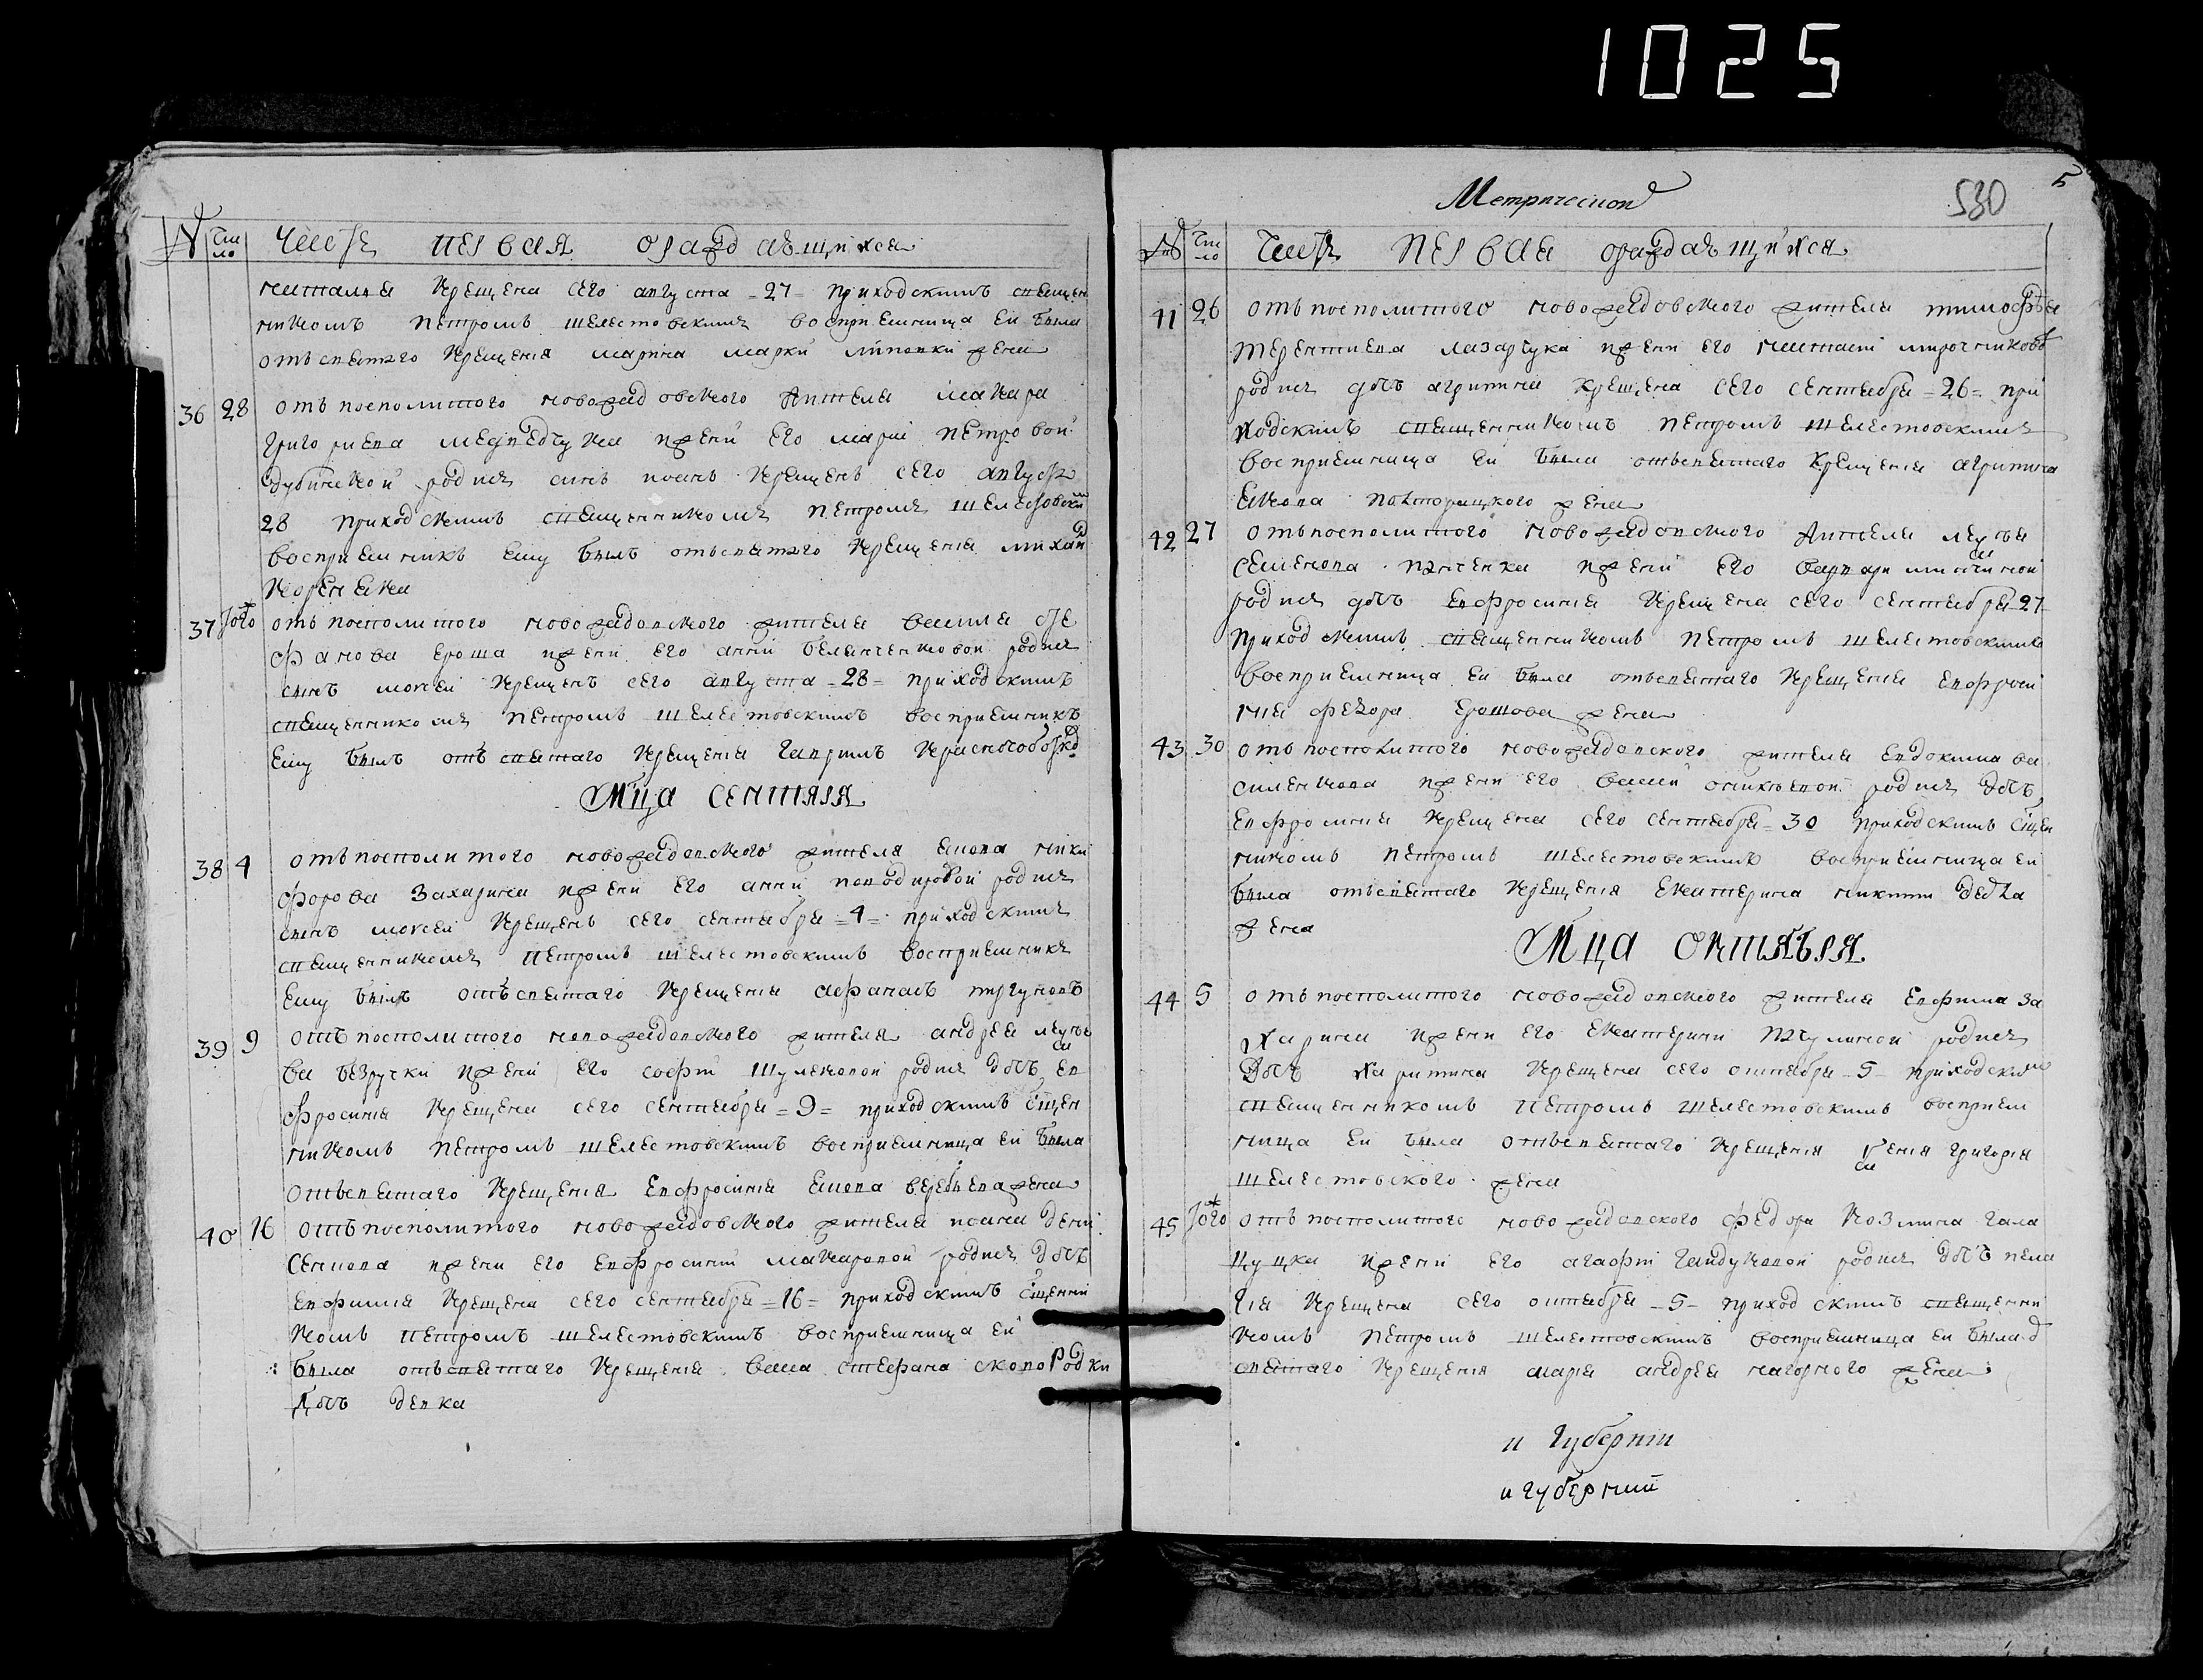 1025
№ Число Часть первая о раждающихся
наталия крещена сего августа =27= приходскимъ священ
никомъ петромъ шелестовскимъ восприемница ей была
отъ святаго крещения марина марки липовки жена
36 28 отъ посполитого новожадовского жителя макара
григориева медведчука и жени его марии петровой
дубинской родися синъ иоанъ крещенъ сего август
28 приходскимъ священникомъ петромъ шелестовским
восприемникъ ему былъ отъ святаго крещения михаи
корснека
37 тогож отъ посполитого новожадовского жителя василия сте
фанова ероша и жени его анни беланченковой родися
синъ мокеи крещенъ сего августа =28= приходскимъ
священникомъ петромъ шелестовскимъ восприемникъ
ему былъ отъ святаго крещения гаврилъ
Мца сентября
38 4 отъ посполитого новожадовского жителя ники
форова захарича и жени его анни родися
синъ мокеи крещенъ сего сентября =4= приходскимъ
священникомъ петромъ шелестовскимъ восприемникъ
ему былъ отъ святаго крещения афанасъ
39 9 отъ посполитого новожадовского жителя андрея
ва безручки и жени его софии родися дочь ев
фросиния крещена сего сентября =9= приходскимъ сщен
никомъ петромъ шелестовскимъ восприемница ей была
отъ святаго крещения евфросиния жена
40 16 отъ посполитого новожадовского жителя ивана
и жени его евфросинии макаровой родися дочь
евфимия крещена сего сентября =16= приходскимъ сщенни
комъ петромъ шелестовскимъ восприемница ей
была отъ святаго крещения васса стефана сковородки
дочь девка
Метрической 530 5
№ Число Часть первая о раждающихся
41 26 отъ посполитого новожадовского жителя тимофея
терентиева лазарчука и жени его настасии мирочниковой
родися дочь агрипина крещена сего сентября =26= при
ходскимъ священникомъ петромъ шелестовскимъ
восприемница ей была отъ святаго крещения агрипина
якова жена
42 27 отъ посполитого новожадовского жителя
семенова и жени его варвари
родися дочь евфросиния крещена сего сентября 27
приходскимъ священникомъ петромъ шелестовскимъ
восприемница ей была отъ святаго крещения евфроси
ния федора ерошова жена
43 30 отъ посполитого новожадовского жителя евдокима ва
силенкова и жени его родися дочь
евфросиния крещена сего сентября =30 приходскимъ сщен
никомъ петромъ шелестовскимъ восприемница ей
была отъ святаго крещения екатерина никити дедка
жена
Мца октября
44 5 отъ посполитого новожадовского жителя евфима за
харича и жени его екатерини родися
дочь харитина крещена сего октября =5= приходским
священникомъ петромъ шелестовскимъ восприем
ница ей была отъ святаго крещения ксения григория
шелестовского жена
45 тогож отъ посполитого новожадовского федора козмина гала
цуцка и жени его агафии гайдуковой родися дочь пела
гия крещена сего октября =5= приходскимъ священни
комъ петромъ шелестовскимъ восприемница ей была
святаго крещения мария андрея нагорного жена
и Губернiи
и губернии